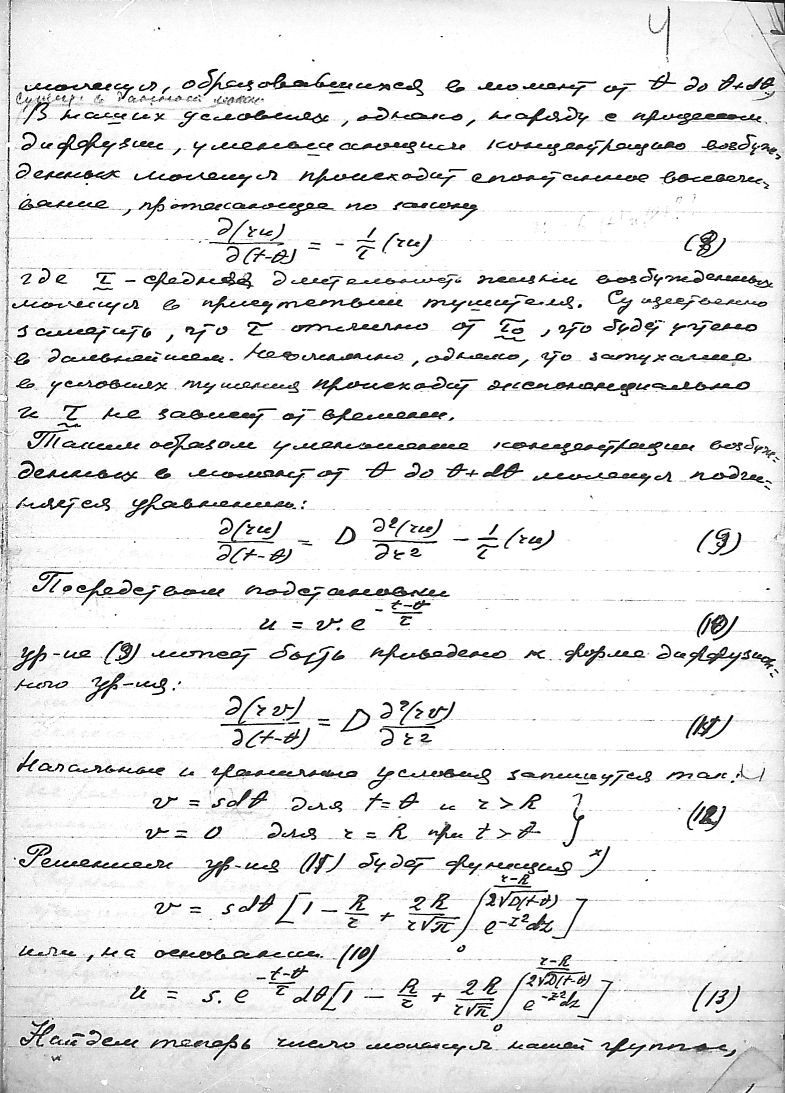 4
молекул, образовавшихся в момент от θ до θ+dθ,
сущ. в данный
В наших условиях, однако, наряду с процессом
диффузии, уменьшающим концентрацию возбуж-
денных молекул происходит спонтанное высвечи-
вание, протекающее по закону
∂(ru)/∂(t-θ) = - 1/τ (ru) (8)
где τ – средняя длительность жизни возбужденных
молекул в присутствии тушителя. Существенно
заметить, что τ отлично от τ₀, что будет учтено
в дальнейшем. Несомненно, однако, что затухание
в условиях тушения происходит экспоненциально
и τ не зависит от времени.
Таким образом уменьшение концентрации возбуж-
денных в момент от θ до θ+dθ молекул подчи-
няется уравнению:
∂(ru)/∂(t-θ) = D ∂²(ru)/∂r² - 1/τ (ru) (9)
Посредством подстановки
u = v.e^(-(t-θ)/τ) (10)
ур-ие (9) может быть приведено к форме диффузион-
ного ур-ия:
∂(rv)/∂(t-θ) = D ∂²(rv)/∂r² (11)
Начальные и граничные условия запишутся так:
v = sdθ для t=θ и r>R
v = 0 для r=R при t>θ } (12)
Решением ур-ия (11) будет функция x)
v = sdθ [1 - R/r + 2R/(r√π) ∫₀^((r-R)/(2√D(t-θ))) e^(-z²)dz]
или, на основании (10)
u = s.e^(-(t-θ)/τ) dθ[1 - R/r + 2R/(r√π) ∫₀^((r-R)/(2√D(t-θ))) e^(-z²)dz] (13)
Найдем теперь число молекул нашей группы,